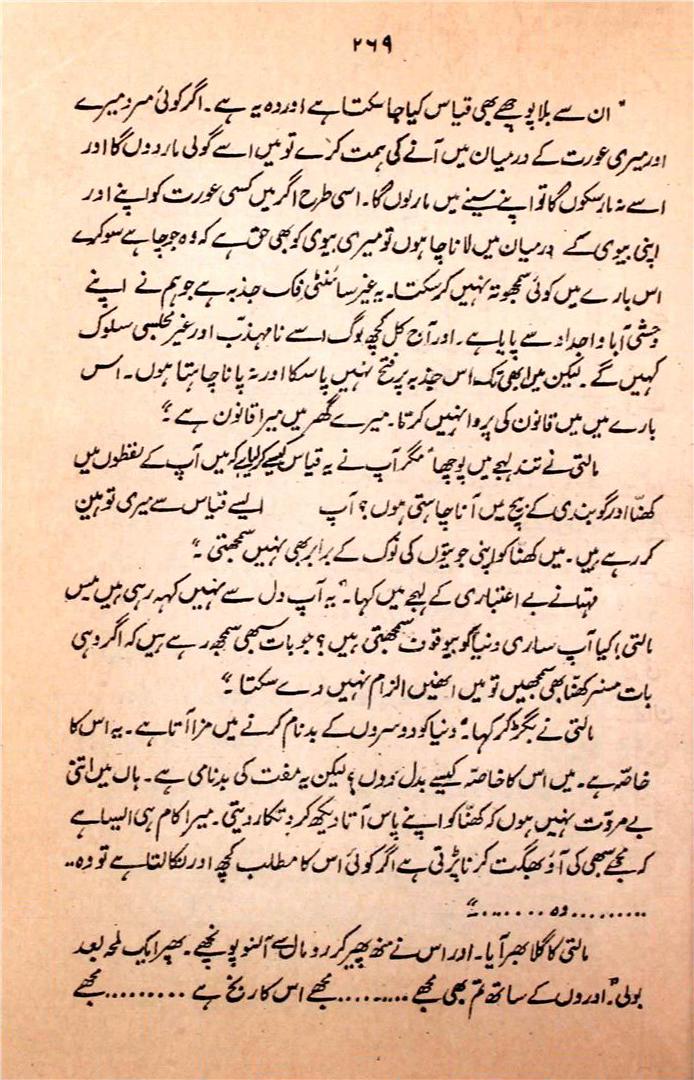 ۲۶۹
" ان سے بلا پوچھے بھی قیاس کیا جا سکتا ہے اور وہ یہ ہے۔ اگر کوئی مرد میرے
اور میری عورت کے درمیان میں آنے کی ہمت کرے تو میں اسے گولی مار دوں گا اور
اسے نہ مار سکوں گا تو اپنے سینے میں مار لوں گا۔ اسی طرح اگر میں کسی عورت کو اپنے اور
اپنی بیوی کے درمیان میں لانا چاہوں تو میری بیوی کو بھی حق ہے کہ وہ جو چاہے سو کرے
اس بارے میں کوئی سمجھوتہ نہیں کر سکتا۔ یہ غیر سائنٹی فک جذبہ ہے جو ہم نے اپنے
وحشی آبا و اجداد سے پایا ہے۔ اور آج کل کچھ لوگ اسے نا مہذب اور غیر مجلسی سلوک
کہیں گے۔ لیکن میں ابھی تک اس جذبہ پر فتح نہیں پا سکا اور نہ پانا چاہتا ہوں۔ اس
بارے میں میں قانون کی پروا نہیں کرتا۔ میرے گھر میں میرا قانون ہے۔"
مالتی نے تند لہجے میں پوچھا "مگر آپ نے یہ قیاس کیسے کر لیا ہے کہ میں آپ کے لفظوں میں
کھنّا اور گوبندی کے بیچ میں آنا چاہتی ہوں؟ آپ ایسے قیاس سے میری توہین
کر رہے ہیں۔ میں کھنّا کو اپنی جوتیوں کی نوک کے برابر بھی نہیں سمجھتی۔"
مہتا نے بے اعتباری کے لہجے میں کہا۔ "یہ آپ دل سے نہیں کہہ رہی ہیں مس
مالتی! کیا آپ ساری دنیا کو بیوقوف سمجھتی ہیں؟ جو بات سبھی سمجھ رہے ہیں کہ اگر وہی
بات مسز کھنّا بھی سمجھیں تو میں انھیں الزام نہیں دے سکتا۔"
مالتی نے بگڑ کر کہا۔ "دنیا کو دوسروں کے بدنام کرنے میں مزا آتا ہے۔ یہ اس کا
خاصّہ ہے۔ میں اس کا خاصّہ کیسے بدل دوں؟ لیکن یہ مفت کی بدنامی ہے۔ ہاں میں اتنی
بے مروّت نہیں ہوں کہ کھنّا کو اپنے پاس آتا دیکھ کر دتکار دیتی۔ میرا کام ہی ایسا ہے
کہ مجھے سبھی کی آؤ بھگت کرنا پڑتی ہے اگر کوئی اس کا مطلب کچھ اور نکالتا ہے تو وہ..
......... وہ ........"
مالتی کا گلا بھر آیا۔ اور اس نے منھ پھیر کر رومال سے آنسو پونچھے۔ پھر ایک لمحہ بعد
بولی۔ "اوروں کے ساتھ تم بھی مجھے ......... مجھے اس کا رنج ہے ......... مجھے